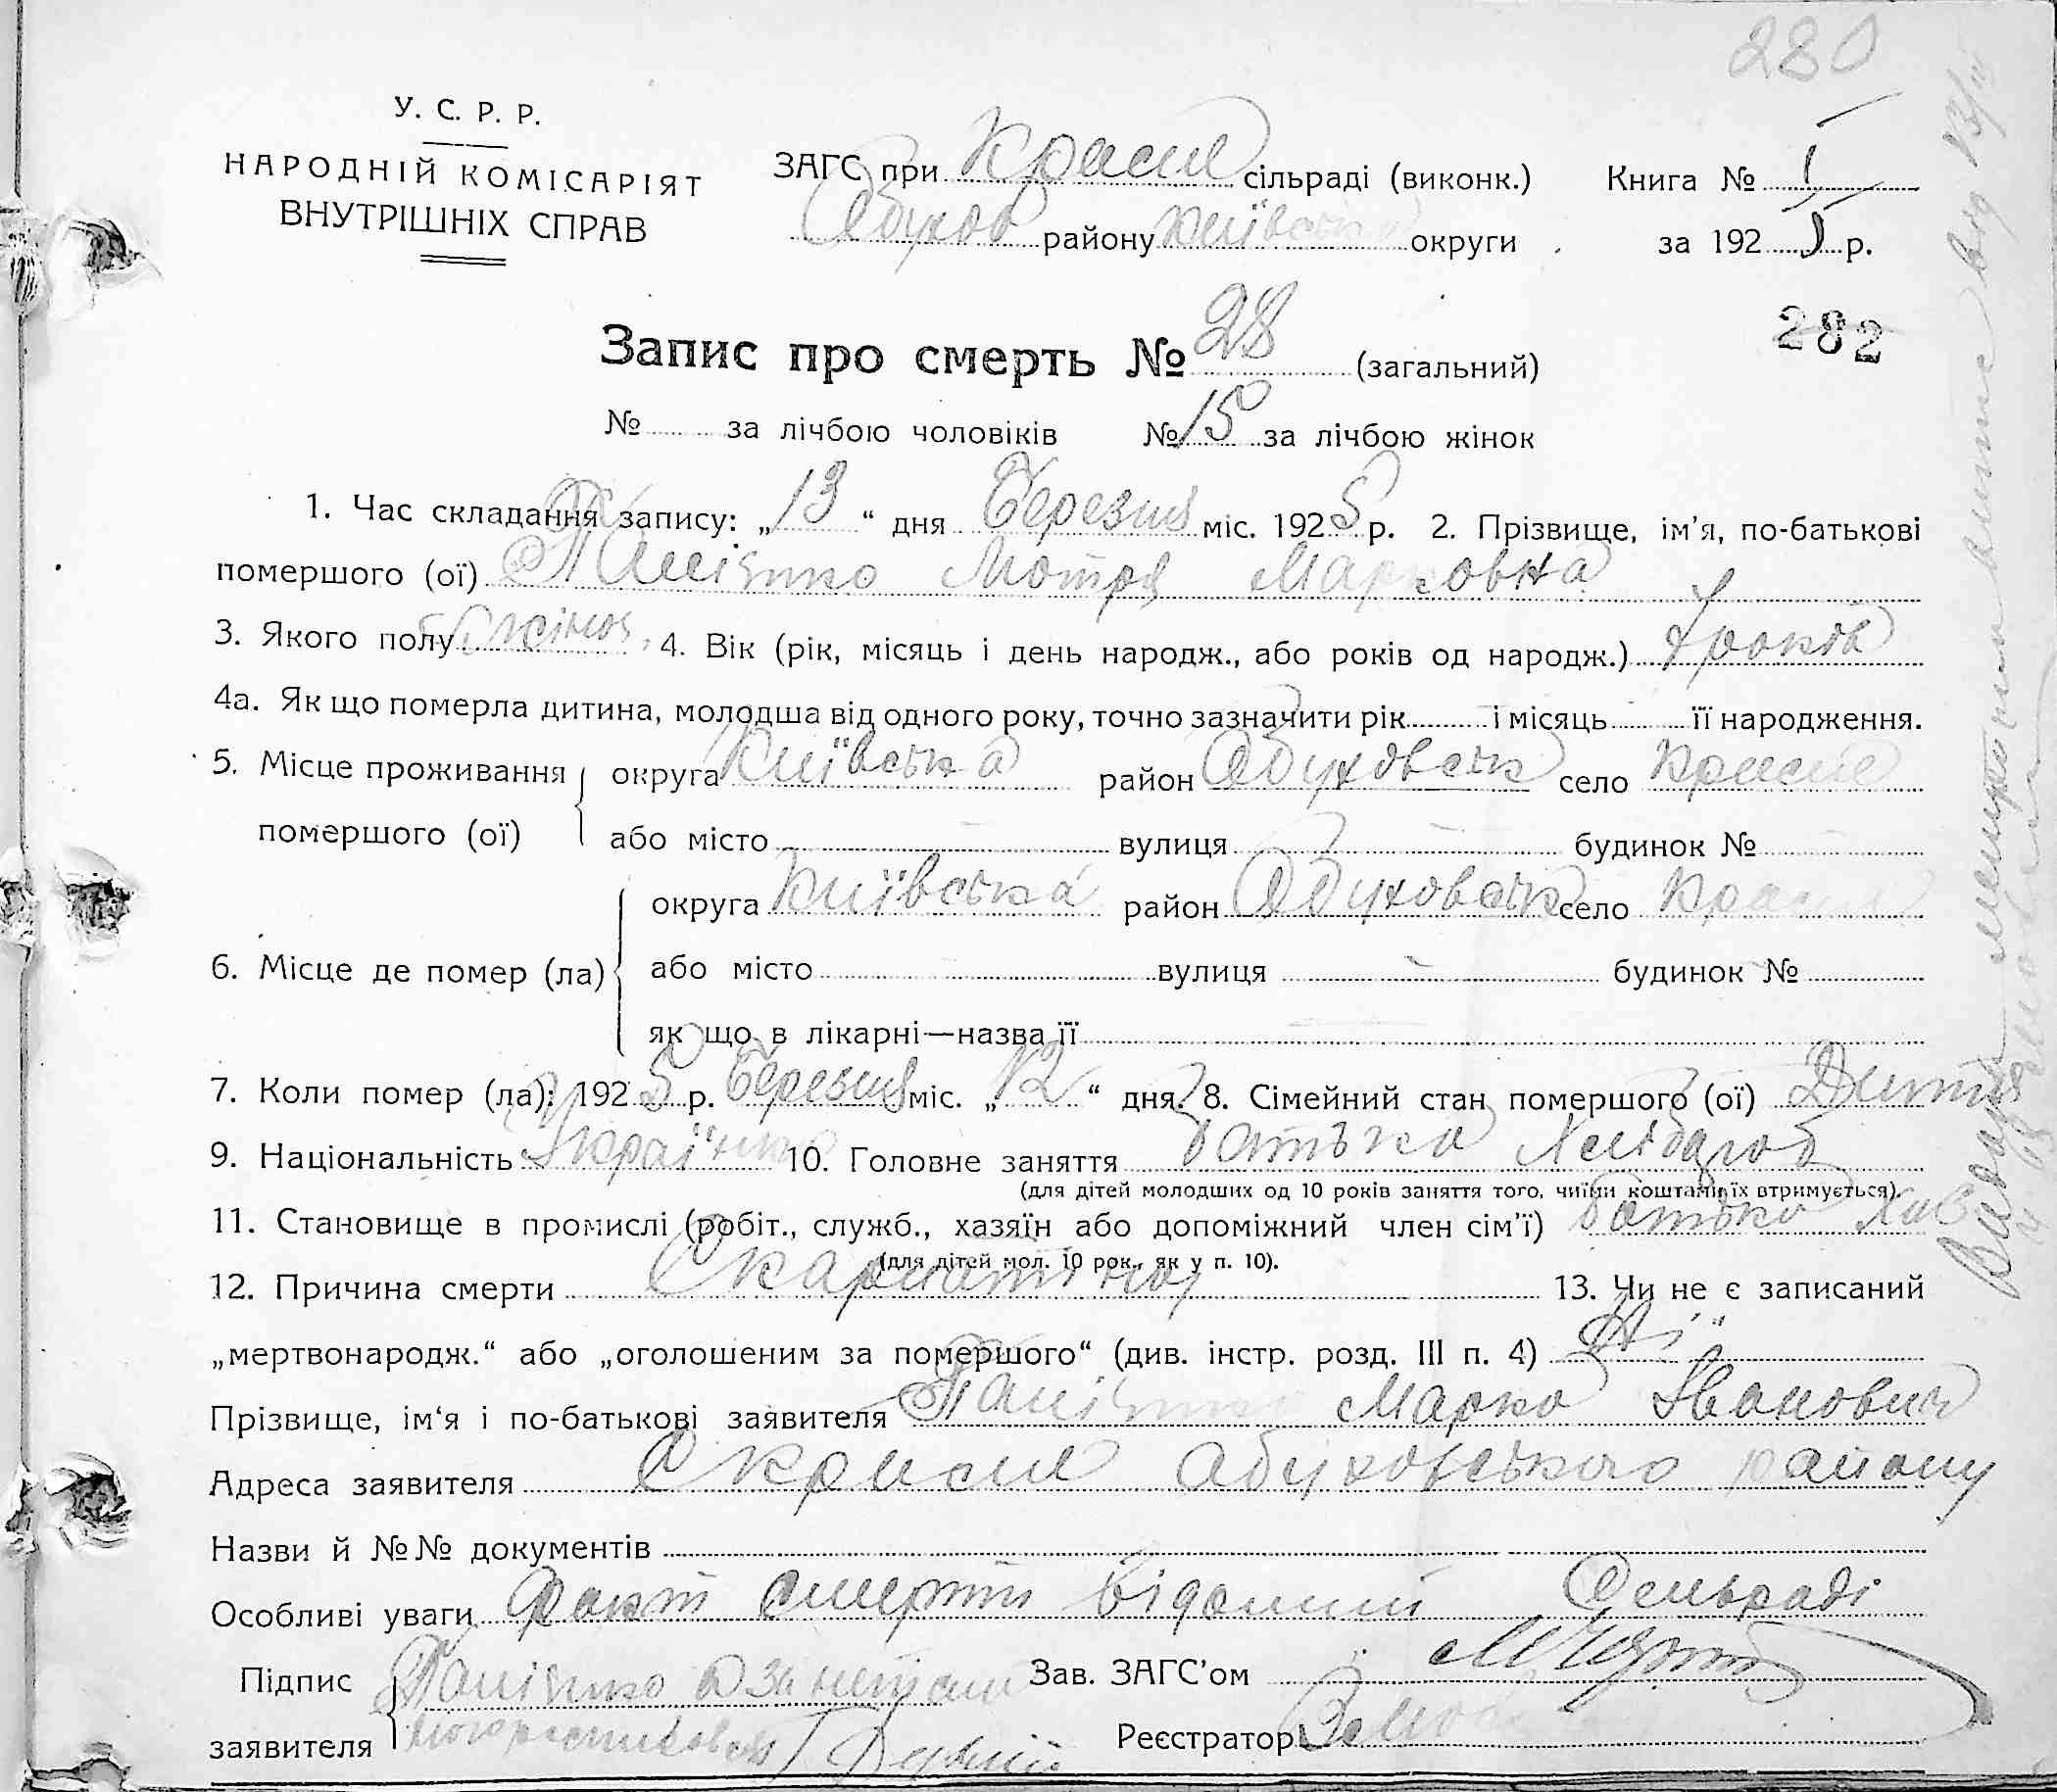 280
У. С. Р. Р.
НАРОДНІЙ КОМІСАРІЯТ
ВНУТРІШНІХ СПРАВ
ЗАГС при Красне сільраді (виконк.) Книга № I
Обухов району Київська округи за 192 5 р.
282
Запис про смерть № 28 (загальний)
№ за лічбою чоловіків № 15 за лічбою жінок
1. Час складання запису: „13“ дня Березня міс. 1925 р. 2. Прізвище, ім’я, по-батькові
помершого (ої) Мотря Марковна
3. Якого полу жіноч. 4. Вік (рік, місяць і день народж., або років од народж.) років
4а. Як що померла дитина, молодша від одного року, точно зазначити рік і місяць її народження.
5. Місце проживання помершого (ої) округа Київська район Обуховськ село Красне
або місто вулиця будинок №
6. Місце де помер (ла) округа Київська район Обуховськ село Красне
або місто вулиця будинок №
як що в лікарні—назва її
7. Коли помер (ла): 1925 р. Березня міс. „12“ дня. 8. Сімейний стан помершого (ої) Дитя
9. Національність Українка 10. Головне заняття батька Хлібороб
(для дітей молодших од 10 років заняття того, чиїми коштами їх втримується).
11. Становище в промислі (робіт., служб., хазяїн або допоміжний член сім’ї) батько хаз
(для дітей мол. 10 рок., як у п. 10).
12. Причина смерти Скарлатина 13. Чи не є записаний
„мертвонародж.“ або „оголошеним за помершого“ (див. інстр. розд. III п. 4) Ні
Прізвище, ім‘я і по-батькові заявителя Марко Іванович
Адреса заявителя С Красне Обуховського району
Назви й №№ документів
Особливі уваги Факт смерти відомий Сельраді
Підпис заявителя Зав. ЗАГС’ом
Реєстратор